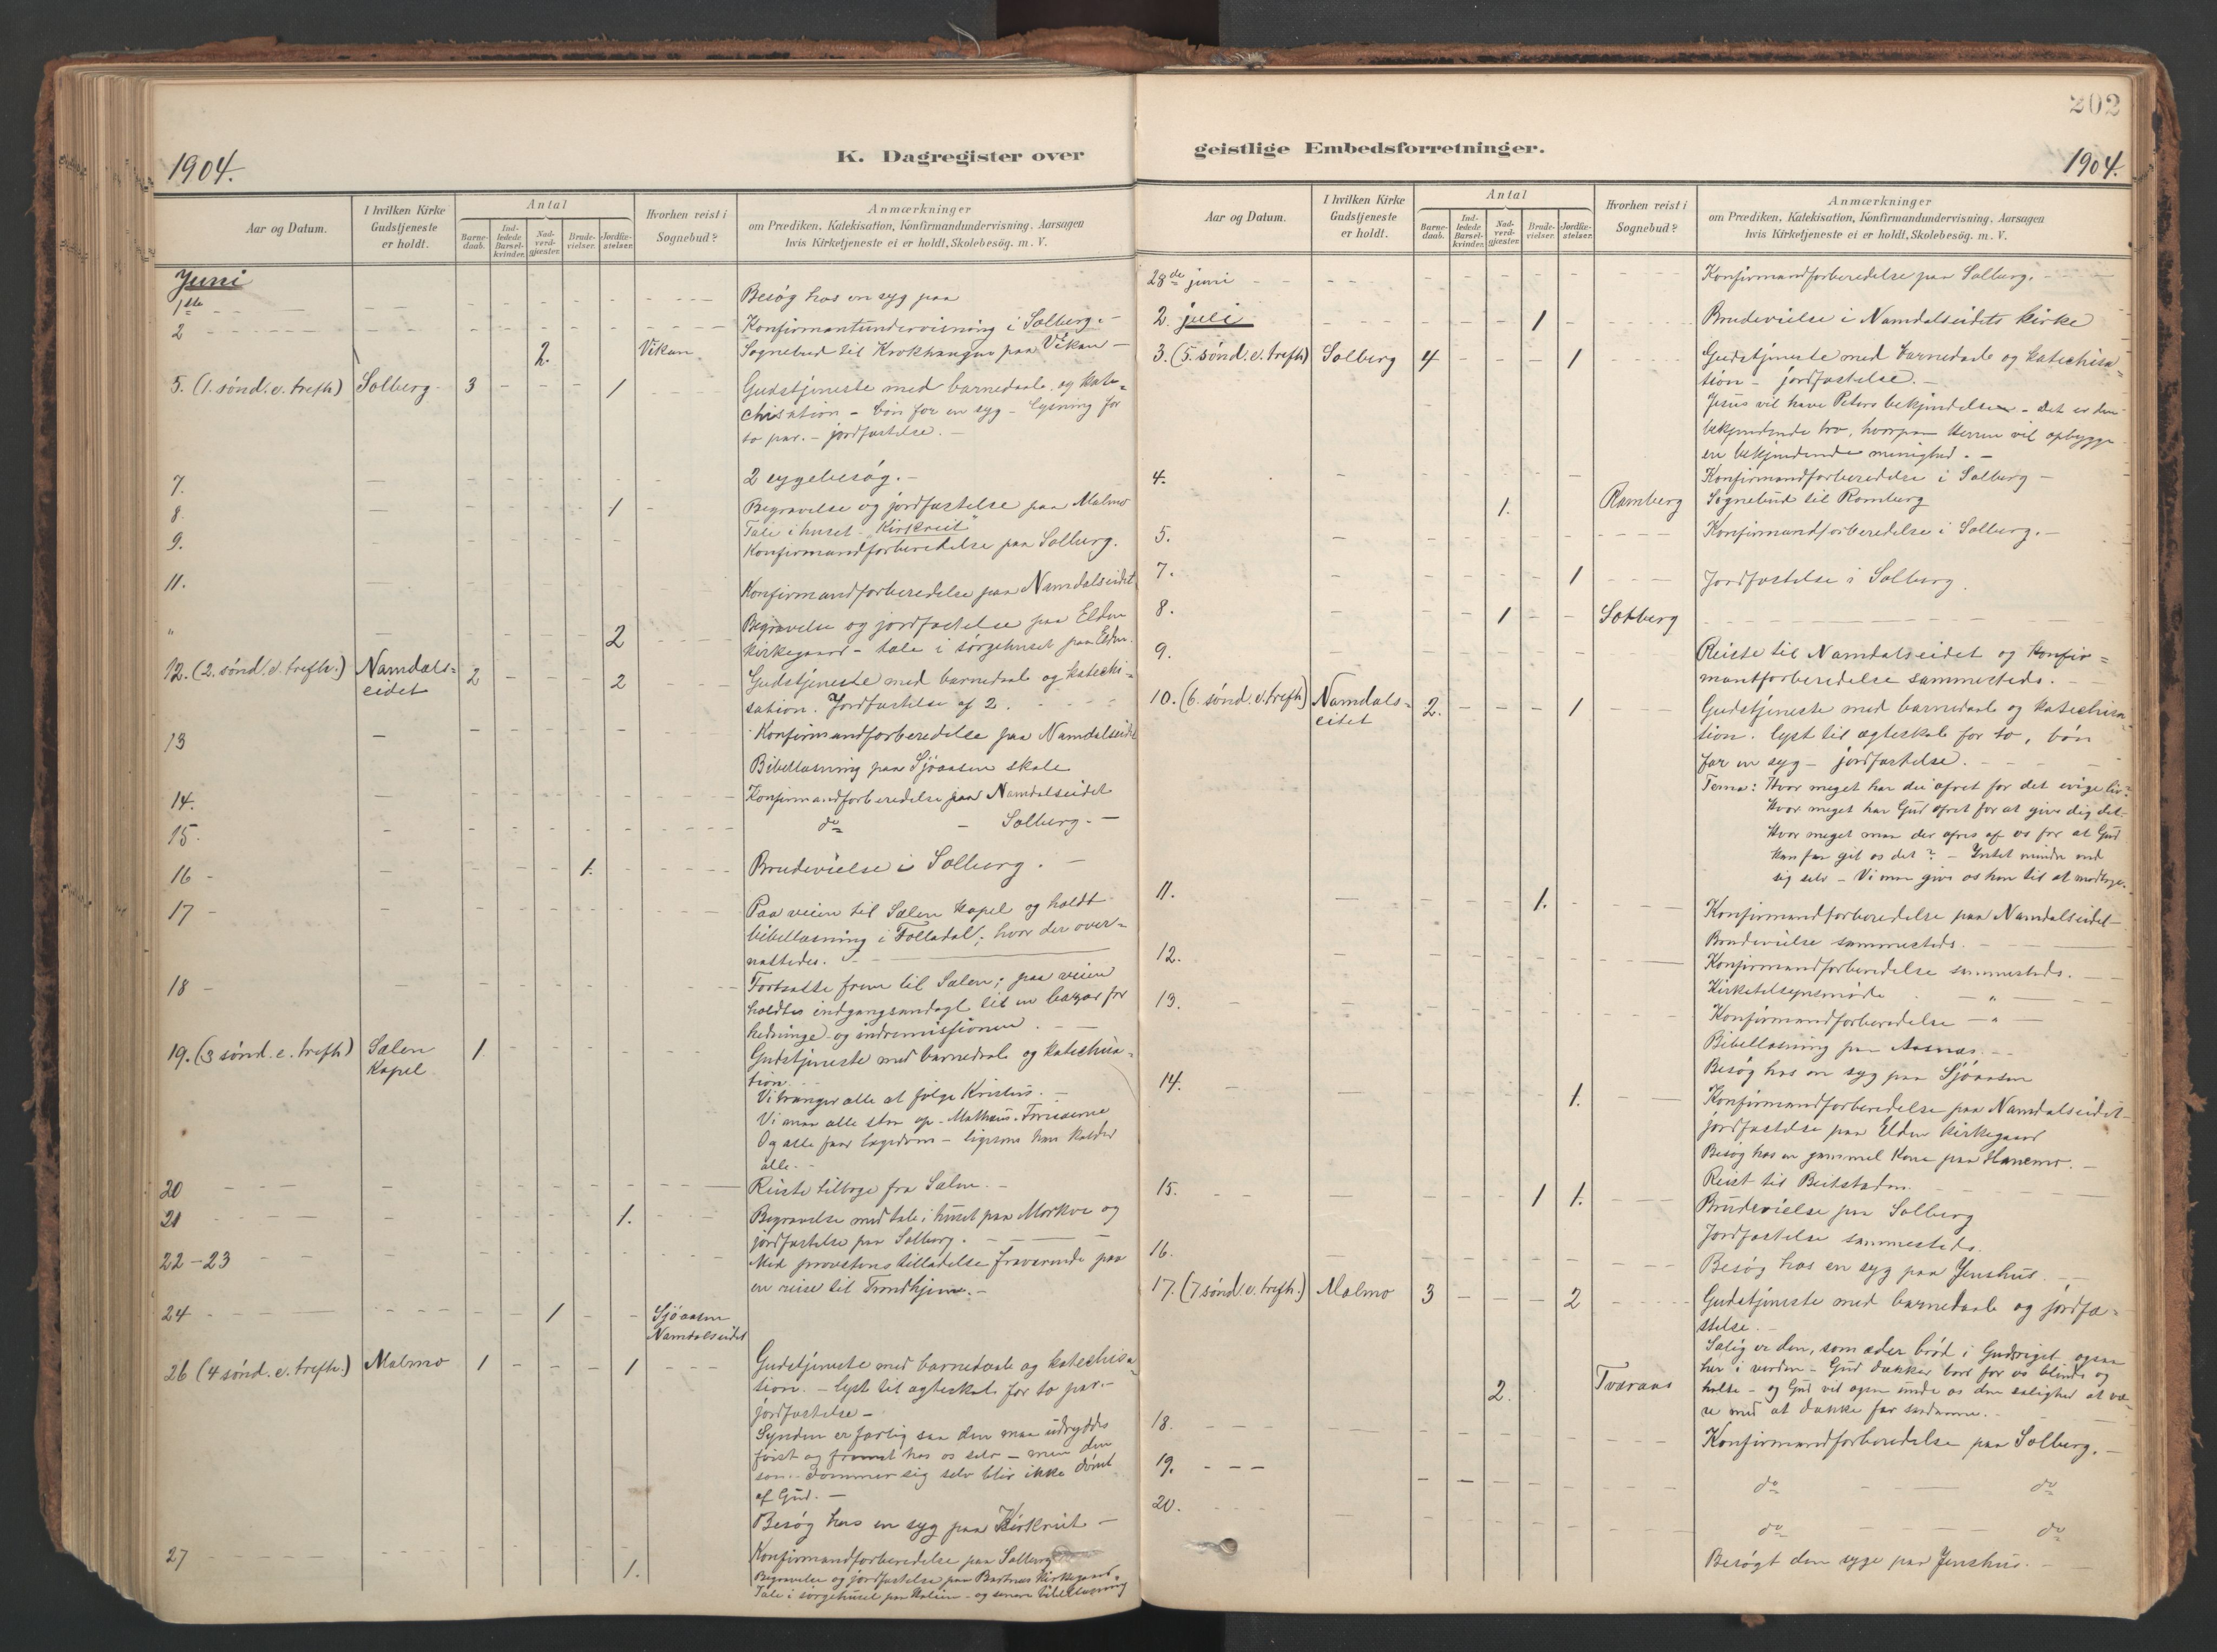 202
1904.
K. Dagregister over
geistlige Embedsforretninger.
1904.
Aar og Datum.
I hvilken Kirke Gudstjeneste er holdt.
Antal
Barne-daab.
Ind-ledede Barsel-kvinder.
Nad-verd-gjæster.
Brude-vielser.
Jordfæ-stelser.
Hvorhen reist i Sognebud?
Anmærkninger
om Prædiken, Katekisation, Konfirmandundervisning, Aarsagen
hvis Kirketjeneste ei er holdt, Skolebesøg. m. V.
Juni
1ste Besøg hos en syg paa
2 Konfirmantundervisning i Solberg. -
2. Vikan Sognebud til Krokhaugen paa Vikan -
5. (1. sønd. e. trefh) Solberg 3 1 Gudstjeneste med barnedaab og kate=
chisation - bøn for en syg - lysning for
to par. - jordfæstelse. -
7. 2 sygebesøg. -
8. 1 Begravelse og jordfæstelse paa Malmo
Tale i huset "Kirkreit"
9. Konfirmandforberedelse paa Solberg.
11. Konfirmandforberedelse paa Namdalseidet
" 2 Begravelse og jordfæstelse paa Elden
kirkegaard - tale i sørgehuset paa Elden.
12. (2. sønd. e. trefh.) Namdals=
eidet 2 2 Gudstjeneste med barnedaab og katechi=
sation. Jordfæstelse af 2.
13 Konfirmandforberedelse paa Namdalseidet
Bibellæsning paa Sjøaasen skole
14. Konfirmandforberedelse paa Namdalseidet
15. do - Solberg. -
16 - 1. Brudevielse i Solberg. -
17 - Paa veien til Sælen kapel og holdt
bibellæsning i Folladal; hvor der over=
nattedes.
18 - Fortsatte frem til Sælen; paa veien
holdtes indgangsandagt til en bazar for
hedninge- og indremissionen.
19. (3 sønd. e. trefh) Sælen
Kapel 1 Gudstjeneste med barnedaab og katechisa=
tion.
Vi trænger alle at følge Kristus. -
Vi maa alle staa op - Mathæus - Farisæerne
Og alle faar lægedom - ligesom han kalder
alle. -
20 Reiste tilbage fra Sælen. -
21 1. Begravelse med tale i huset paa Morkve og
jordfæstelse paa Solberg. -
22 - 23 Med provstens tilladelse fraværende paa
en reise til Trondhjem. -
24 1 Sjøaasen
Namdalseidet
26 (4 sønd. e. trefh.) Malmo 1 1 Gudstjeneste med barnedaab og katechisa=
tion. - lyst til ægteskab for to par. -
jordfæstelse -
Synden er farlig saa den maa udryddes
først og fremst hos os selv - men den
som dømmer sig selv blir ikke dømt
af Gud. -
Besøg hos en syg paa Kirkreit -
27 Konfirmandforberedelse paa Solberg
1. Begravelse og jordfæstelse paa Bartnes kirkegaard.
Tale i sørgehuset paa - og senere bibellæsning
Aar og Datum.
I hvilken Kirke Gudstjeneste er holdt.
Antal
Barne-daab.
Ind-ledede Barsel-kvinder.
Nad-verd-gjæster.
Brude-vielser.
Jordfæ-stelser.
Hvorhen reist i Sognebud?
Anmærkninger
om Prædiken, Katekisation, Konfirmandundervisning, Aarsagen
hvis Kirketjeneste ei er holdt, Skolebesøg. m. V.
28de juni Konfirmandforberedelse paa Solberg.
2. juli 1 Brudevielse i Namdalseidets kirke
3. (5. sønd. e. trefh) Solberg 4 1 Gudstjeneste med barnedaab og katechisa=
tion - jordfæstelse. -
Jesus vil have Peters bekjendelse - det er den
bekjendende tro, hvorpaa Herren vil opbygge
en bekjendende menighed. -
4. Konfirmandforberedelse i Solberg -
1. Ramberg Sognebud til Ramberg
5. Konfirmandforberedelse i Solberg. -
7. 1 Jordfæstelse i Solberg.
8. 1 Solberg
9. Reiste til Namdalseidet og konfir=
mantforberedelse sammesteds. -
10. (6. sønd. e. trefh) Namdals=
eidet 2. 1 Gudstjeneste med barnedaab og katechisa=
tion. lyst til ægteskab for to, bøn
for en syg - jordfæstelse.
Tema: Hvor meget har du ofret for det evige liv?
Hvor meget har Gud ofret for at give dig det.
Hvor meget maa der ofres af os for at Gud
kan faa git os det? - Intet mindre end
sig selv - Vi maa give os hen til at modtage.
11. 1. Konfirmandforberedelse paa Namdalseidet
Brudevielse sammesteds.
12. Konfirmandforberedelse sammesteds.
Kirketilsynsmøde - " -
13. Konfirmandforberedelse - " -
Bibellæsning paa Aasnæs. -
Besøg hos en syg paa Sjøaasen
14. 1. Konfirmandforberedelse paa Namdalseidet
jordfæstelse paa Elden kirkegaard
Besøg hos en gammel kone paa Hanemo. -
15. Reist til Beitstaden.
1 1. Brudevielse paa Solberg
Jordfæstelse sammesteds.
16. Besøg hos en syg paa Jenshus.
17. (7 sønd. e. trefh.) Malmo 3 2 Gudstjeneste med barnedaab og jordfæ=
stelse. -
Salig er den, som æder brød i Gudsriget ogsaa
her i verden - Gud dækker bord for os blinde og
halte - og Gud vil ogsaa unde os den salighed at væ=
re med at dække for andre.
2. Tværaas
18. Konfirmandforberedelse paa Solberg. -
19. do do
20. do do
Besøgt den syge paa Jenshus. -